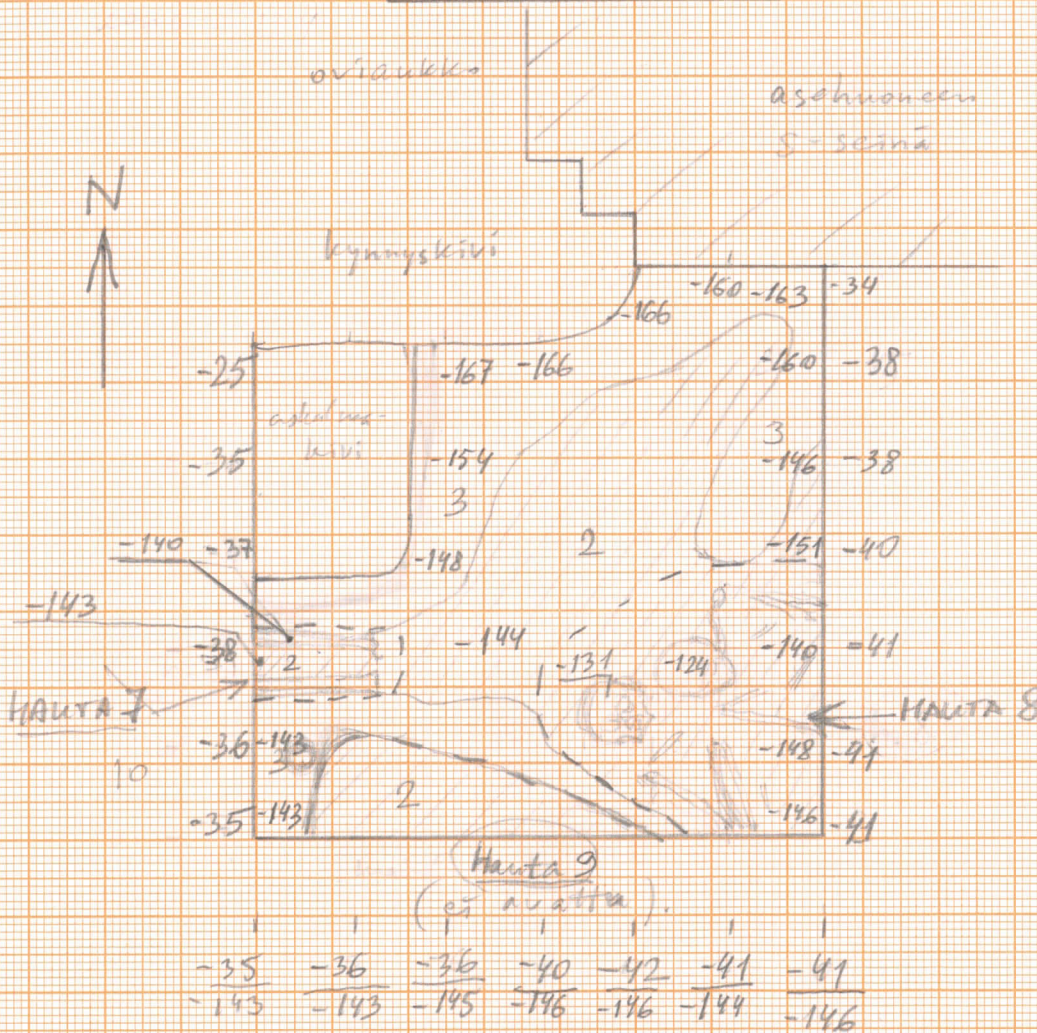 oviaukko
asehuoneen
S-seinä
N
kynnyskivi
-160 -163 -34
-166
-25 -167 -166 -160 -38
askelma-
kivi
-35 -154 3 -146 -38
3
-140 -37 -148 2 -151 -40
-143
-38 2 -144 -131 -124 -140 -41
HAUTA 7 HAUTA 8
-36 -143 -148 -41
10
2
-35 -143 -146 -41
Hauta 9
(ei avattu).
-35 -36 -36 -40 -42 -41 -41
-143 -143 -145 -146 -146 -144 -146